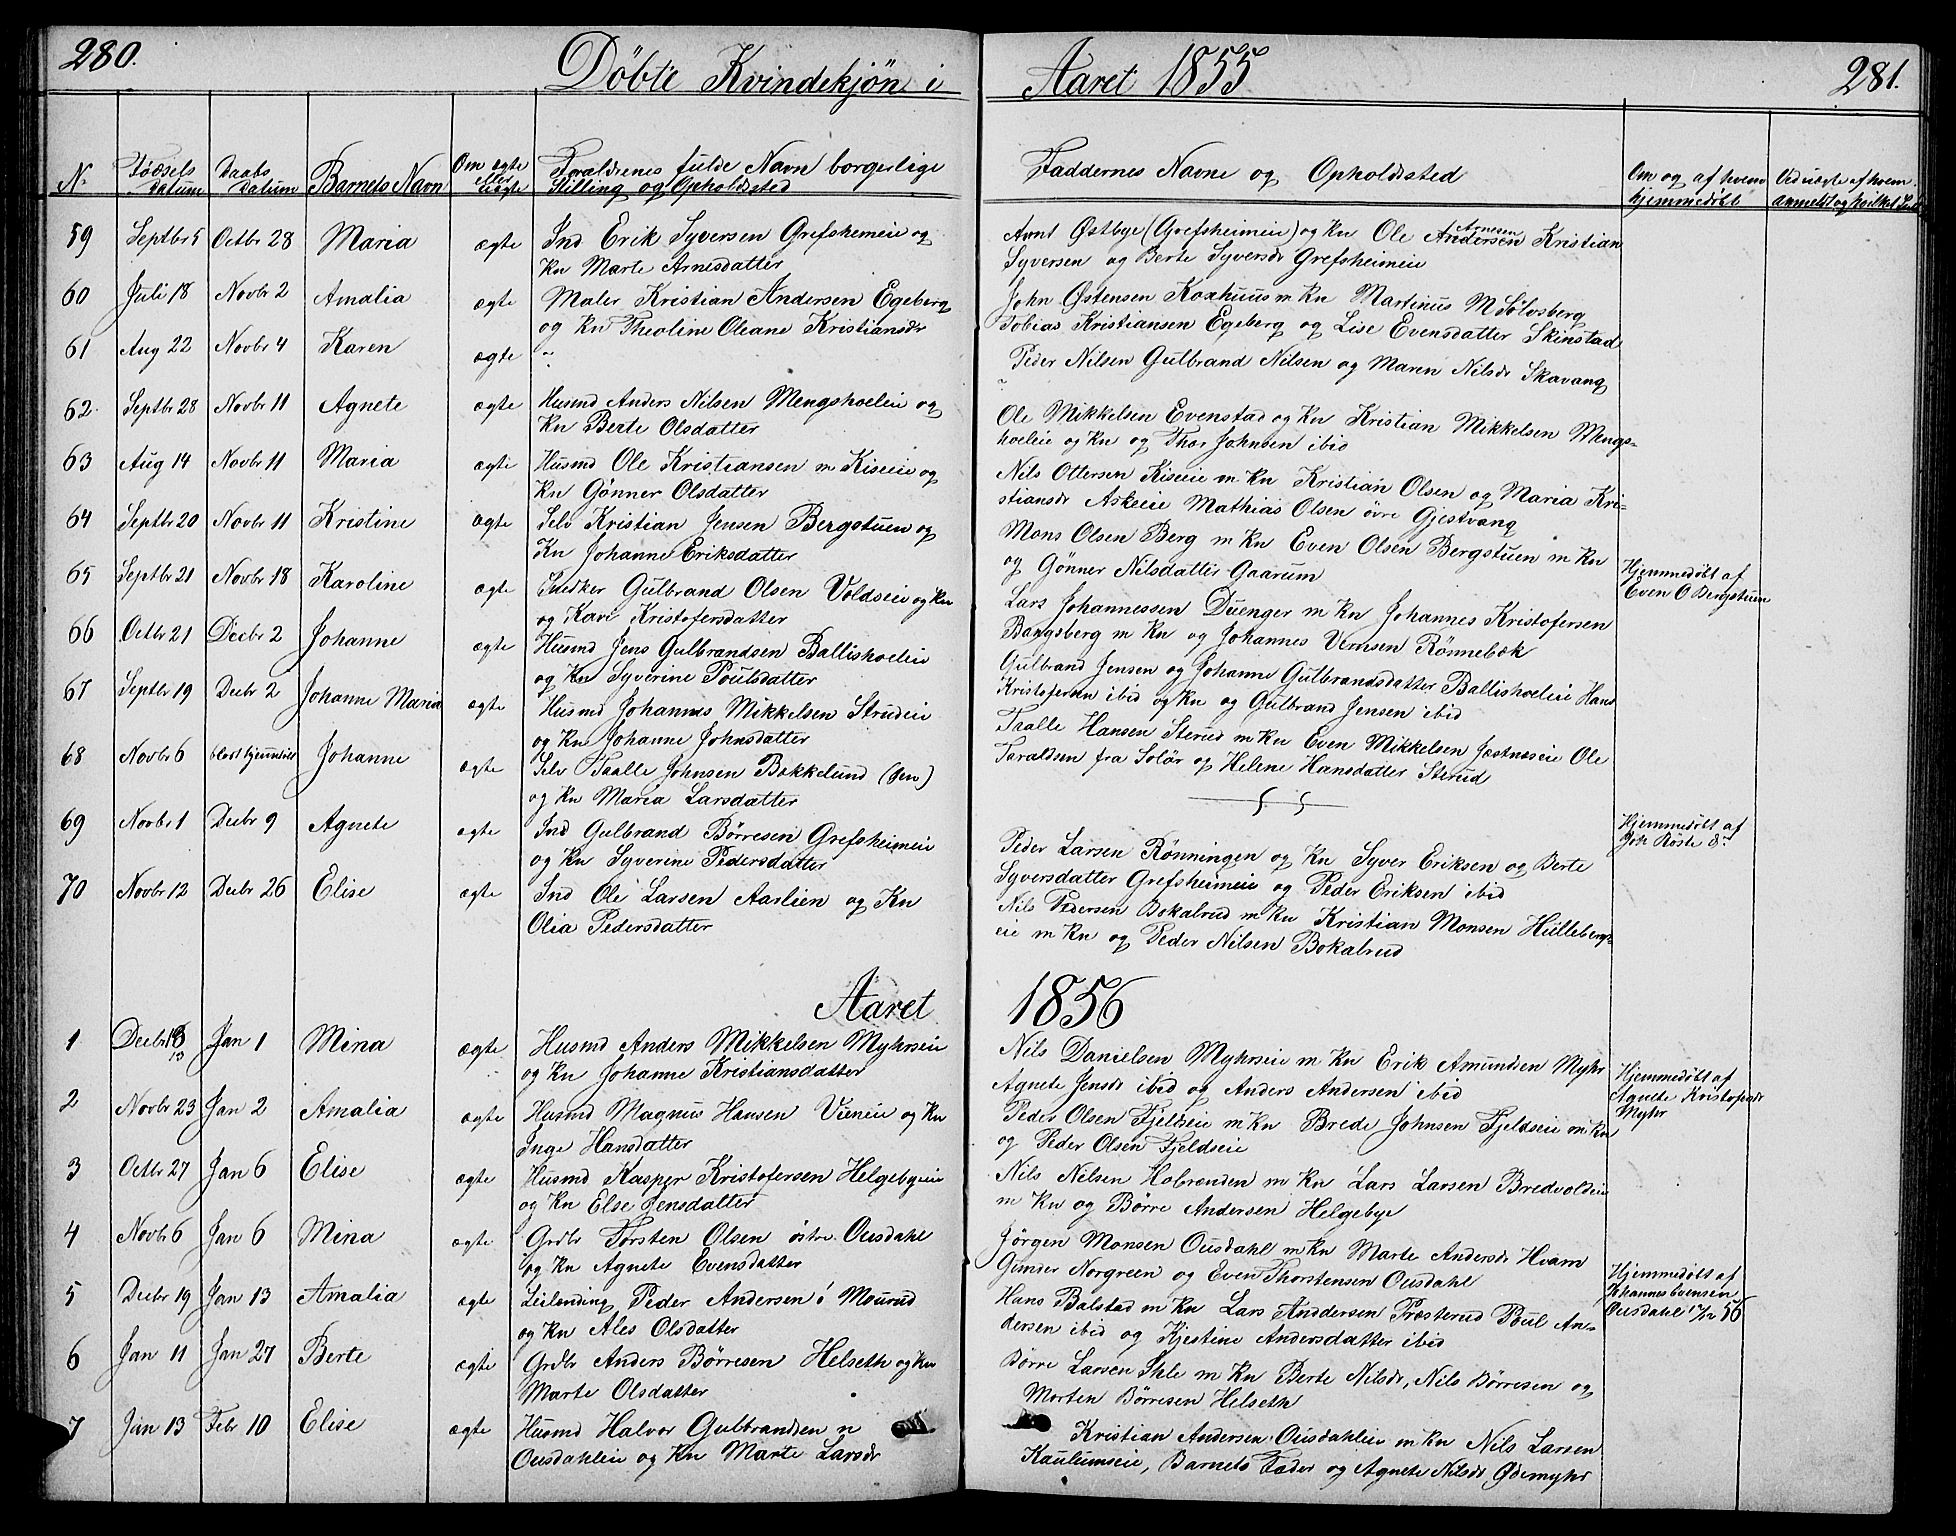 280.
Döbte Kvindekjön i
Aaret 1855
281.
N. Födsels datum Daabs datum Barnets Navn Om ægte eller uægte Forældrenes fulde Navn borgerlige Stilling og Opholdssted
Faddernes Navne og Opholdssted Om og af hvem hjemmedöbt Ved uægte af hvem anmeldt og hvilket
59 Septbr 5 Octbr 28 Maria ægte Ind Erik Syversen Grefsheimeie og
Kn Marte Arnesdatter
60 Juli 18 Novbr 2 Amalia ægte Maler Kristian Andersen Egeberg
og Kn Theoline Oleane Kristiansdr
61 Aug 22 Novbr 4 Karen ægte "
62. Septbr 28 Novbr 11 Agnete ægte Husmd Anders Nilsen Mengshoeleie og
Kn Berte Olsdatter
63 Aug 14 Novbr 11 Maria ægte Husmd Ole Kristiansen m Kiseeie og
Kn Gönner Olsdatter
64 Septbr 20 Novbr 11 Kristine ægte Selv Kristian Jensen Bergstuen og
Kn Johanne Eriksdatter
65 Septbr 21 Novbr 18 Karoline ægte Snedker Gulbrand Olsen Voldseie og Kn
og Kari Kristofersdatter
66 Octbr 21 Decbr 2 Johanne ægte Husmd Jens Gulbrandsen Ballishoeleie
og Kn Syverine Poulsdatter
67 Septbr 19 Decbr 2 Johanne Maria ægte Husmd Johannes Mikkelsen Strudeie
og Kn Johanne Johnsdatter
68 Novbr 6 blot hjemmedöbt Johanne ægte Selv Taalle Johnsen Bakkelund (sen)
og Kn Maria Larsdatter
69 Novbr 1 Decbr 9 Agnete ægte Ind Gulbrand Börresen Grefsheimeie
og Kn Syverine Pedersdatter
70 Novbr 12 Decbr 26 Elise ægte Ind Ole Larsen Aarlien og Kn
Olia Pedersdatter
Arnt Östbye (Grefsheimeie) og Kn Ole Andersen Arnesen Kristian
Syversen og Berte Syversdr Grefsheimeie
John Östensen Koxhuus m Kn Martinus M Sölvsberg
Tobias Kristiansen Egeberg og Lise Evensdatter Skinstad
Peder Nilsen Gulbrand Nilsen og Maren Nilsdr Skavang
"
Ole Mikkelsen Evenstad og Kn Kristian Mikkelsen Mengs-
hoeleie og Kn og Thor Johnsen ibid
Nils Ottersen Kiseeie m Kn Kristian Olsen og Maria Kri-
stiansdr Askeie Mathias Olsen övre Gjestvang
Mons Olsen Berg m Kn Even Olsen Bergstuen m Kn
og Gönner Nilsdatter Gaarum
Hjemmedöbt af
Even O Bergstuen
Lars Johannessen Duenger m Kn Johannes Kristofersen
Bangsberg m Kn og Johannes Vernsen Rönnebæk
Gulbrand Jensen og Johanne Gulbrandsdatter Ballishoeleie Hans
Kristofersen ibid og Kn og Gulbrand Jensen ibid
Taalle Hansen Sterud m Kn Even Mikkelsen Jæstnæseie Ole
Taraldsen fra Solör og Helene Hansdatter Sterud
Hjemmedöbt af
Peder Larsen Rönningen og Kn Syver Eriksen og Berte
Syversdatter Grefsheimeie og Peder Eriksen ibid
Nils Pedersen Bokalrud m Kn Kristian Monsen Hullebergs-
eie m Kn og Peder Nilsen Bokalrud
Aaret 1856
1 Decbr Jan 1 Mina ægte Husmd Anders Mikkelsen Myhrseie
og Kn Johanne Kristiansdatter
2 Novbr 23 Jan 2 Amalia ægte Husmd Magnus Hansen Vieneie og Kn
Inge Hansdatter
3 Octbr 27 Jan 6 Elise ægte Husmd Kasper Kristofersen Helgebyeie
og Kn Else Jensdatter
4 Novbr 6 Jan 6 Mina ægte Grdbr Torsten Olsen östre Ousdahl
og Kn Agnete Evensdatter
5 Decbr 19 Jan 13 Amalia ægte Leilending Peder Andersen i Mourud
og Kn Ales Olsdatter
6 Jan 11 Jan 27 Berte ægte Grdbr Anders Börresen Helseth og Kn
Marte Olsdatter
7 Jan 13 Febr 10 Elise ægte Husmd Halvor Gulbrandsen n
Ousdahleie og Kn Marte Larsdr
Nils Danielsen Myhrseie m Kn Erik Amundsen Myhr
Agnete Jensdr ibid og Anders Andersen ibid
Hjemmedöbt af
Agnete Kristofersdr
Myhr
Peder Olsen Fjeldseie m Kn Brede Johnsen Fjeldseie m Kn
og Peder Olsen Fjeldseie
Nils Nilsen Hobrenden m Kn Lars Larsen Bredvoldeie
m Kn og Börre Andersen Helgebye
Jörgen Monsen Ousdahl m Kn Marte Andersdr Hvam
Gunder Norgreen og Even Thorstensen Ousdahl
Hjemmedöbt af
Johannes Evensen
Ousdahl 17/12 56
Hans Balstad m Kn Lars Anddersen Præsterud Poul An-
dersen ibid og Kjestine Andersdatter ibid
Börre Larsen Ihle m Kn Berte Nilsdr, Nils Börresen og
Morten Börresen Helseth
Kristian Andersen Ousdahleie m Kn Nils Larsen
Kaulumseie, Barnets Fader og Agnete Nilsdr Ödemyhr